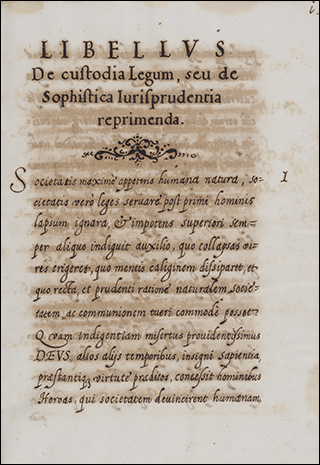 i
LIBELLVS
De custodia Legum, seu de
Sophistica Iurisprudentia
reprimenda.
Societatis maximè appetens humana natura, so-
1
cietatis verò leges seruare post primi hominis
lapsum ignara, & impotens superiori sem=
per aliquo indiguit auxilio, quo collapsas vi=
res erigeret, quo mentis caliginem dissiparet, et
quo recta, et prudenti ratione naturalem socie-
tatem, ac communionem tueri commodè posset.
Quam indigentiam misertus prouidentissimus
DEVS, alios alijs temporibus, insigni sapientia,
præstantiq; virtute præditos, concessit hominibus
Heroas, qui societatem deuincirent humanam,